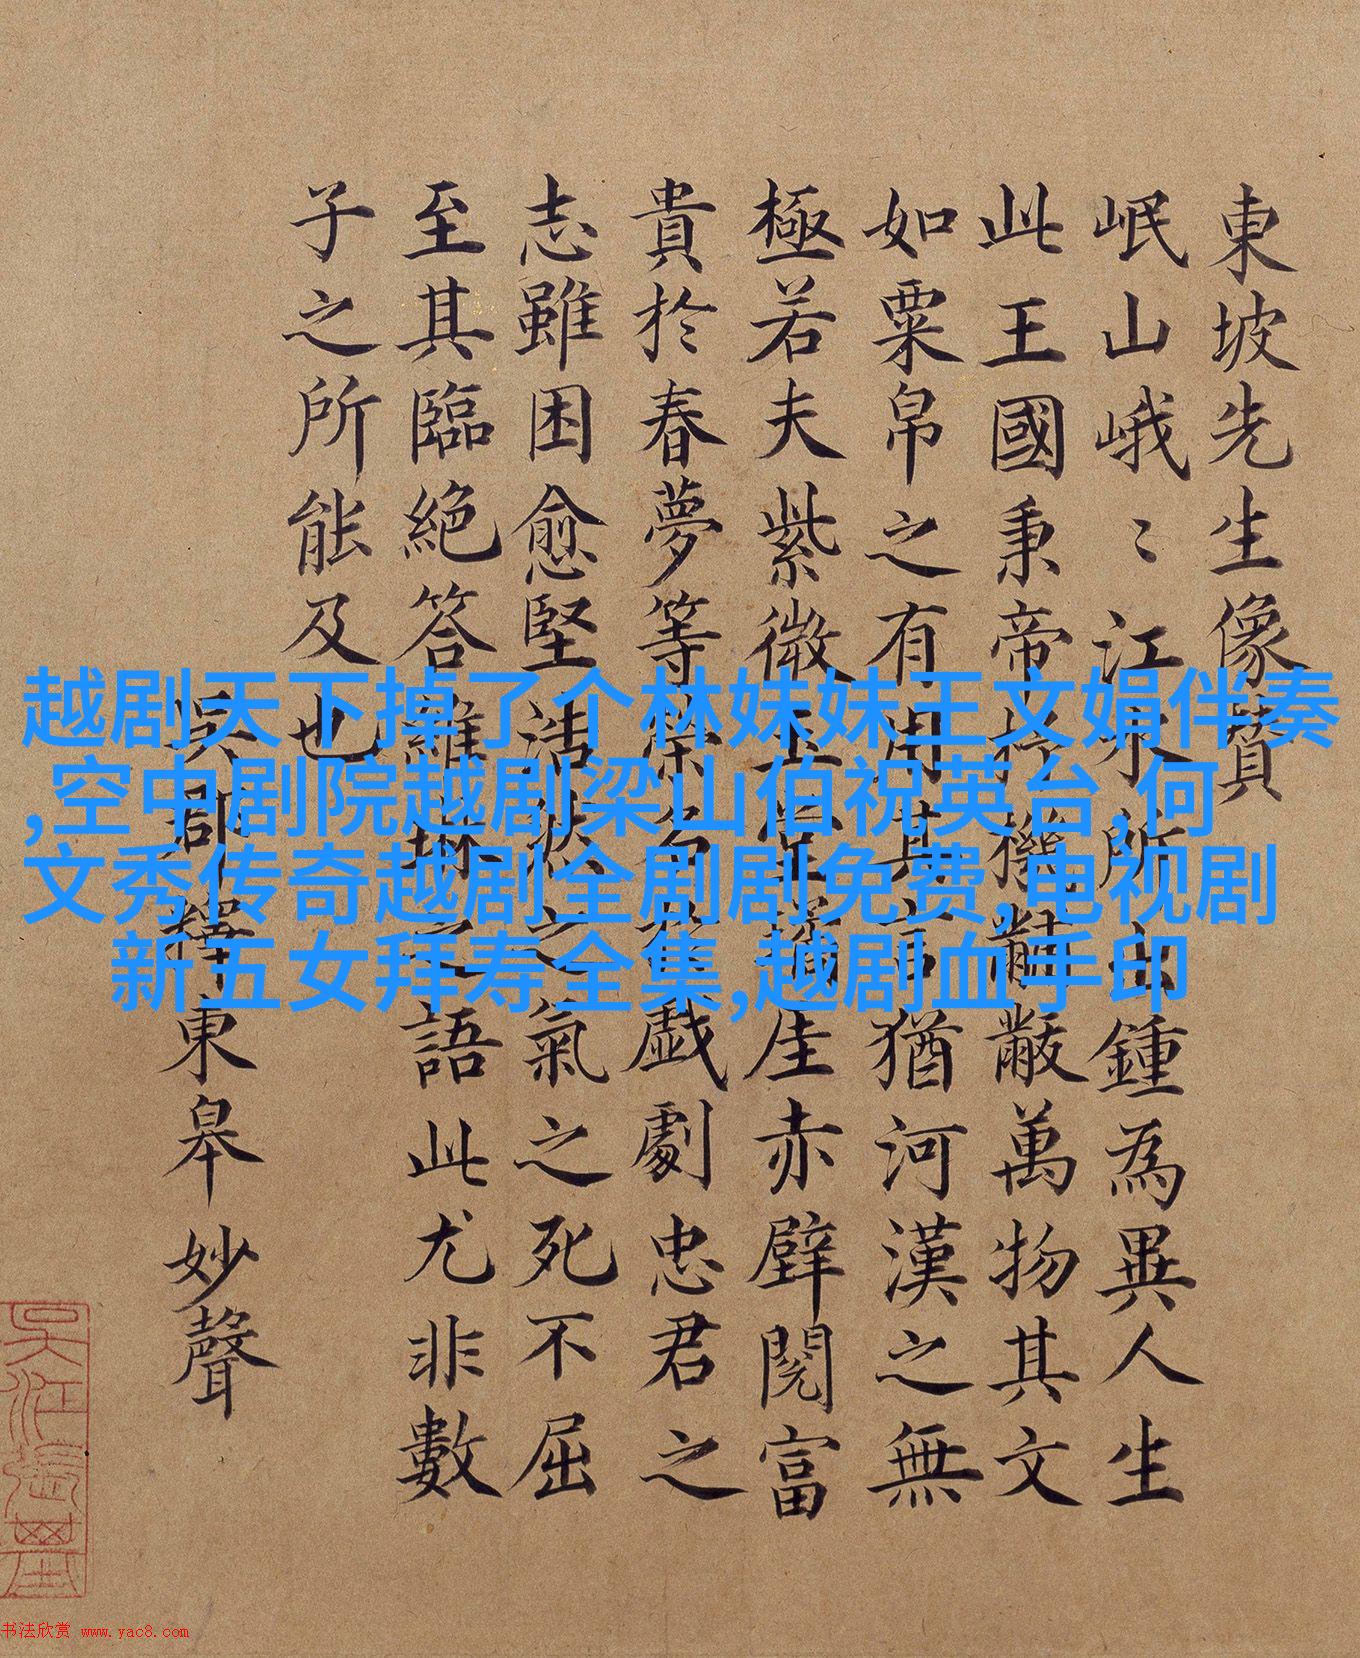 東坡先生像贊
岷山峨〻江水所出鍾為異人生
此王國秉帝杼機黼黻萬物其文
如粟帛之有用其言猶河漢之無
極若夫紫微玉堂瓊厓赤壁閱富
貴於春夢等榮名於戲劇忠君之
志雖困愈堅浩然之氣之死不屈
至其臨絕答維琳之語此尤非數
子之所能及也
吳郡釋東皋妙聲
越剧天下掉了个林妹妹王文娟伴奏
,空中剧院越剧梁山伯祝英台,何
文秀传奇越剧全剧剧免费,电视剧
新五女拜寿全集,越剧血手印
书法欣赏 www.yac8.com